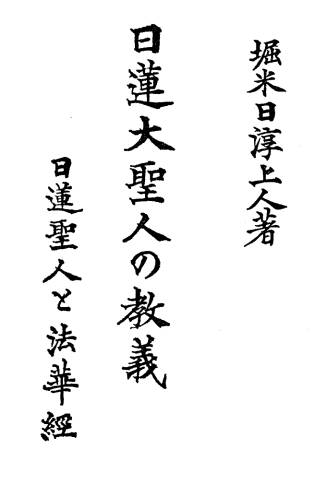 堀米日淳上人著
日蓮大聖人の教義
日蓮聖人と法華經